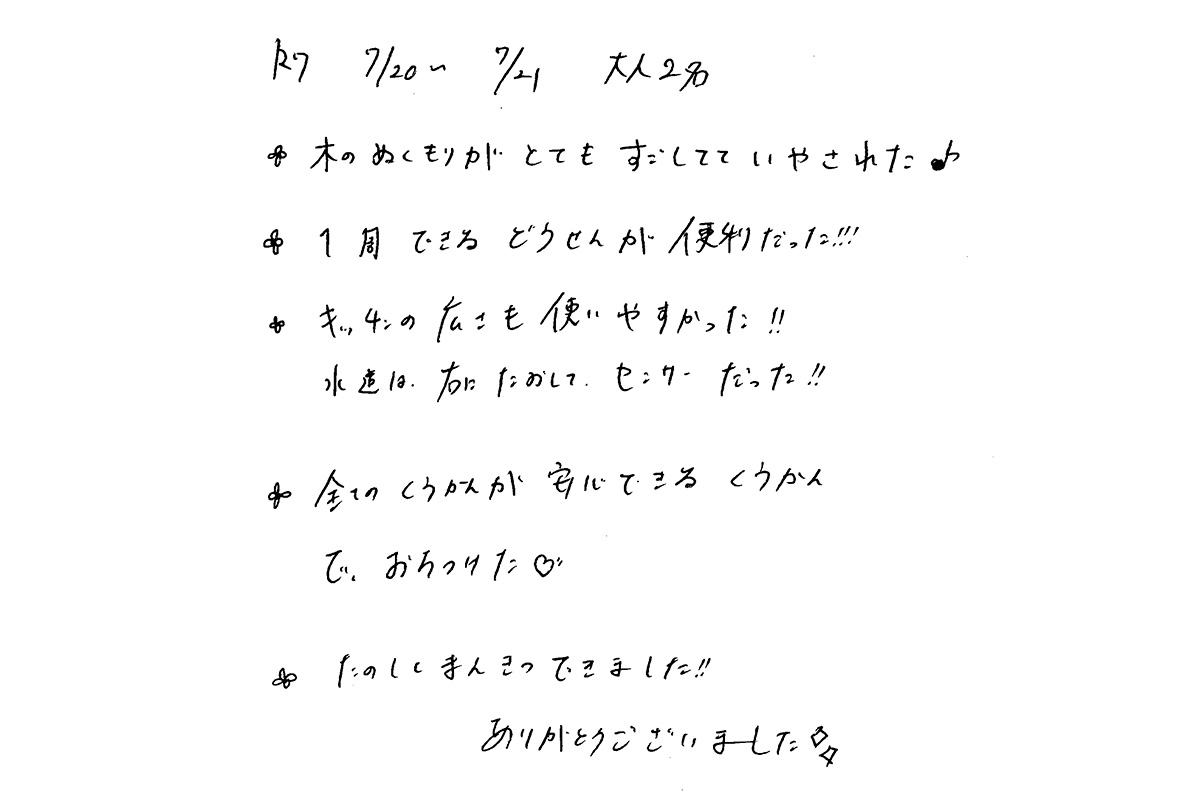 R7 7/20~ 7/21 大人2名
* 木のぬくもりがとてもすごしてていやされた♪
* 1周できるどうせんが便利だった!!!
* キッチンの広さも使いやすかった!!
水道は、右にたおして、センサーだった!!
* 全てのくうかんが安心できるくうかん
で、おちつけた♡
* たのしくまんきつできました!!
ありがとうございました